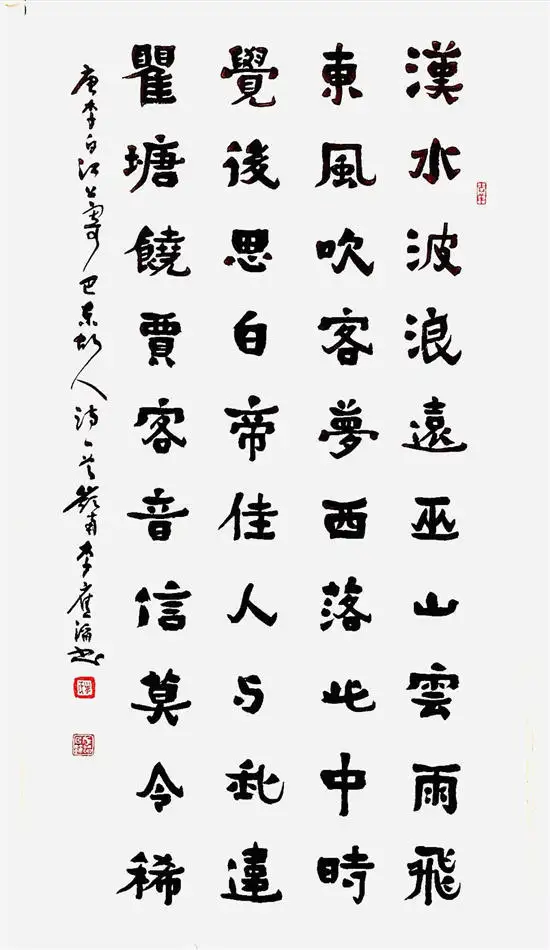 漢水波浪遠巫山雲雨飛
東風吹客夢西落此中時
覺後思白帝佳人与我違
瞿塘饒賈客音信莫令稀
唐李白江上寄巴東故人詩一首嶺南李應书